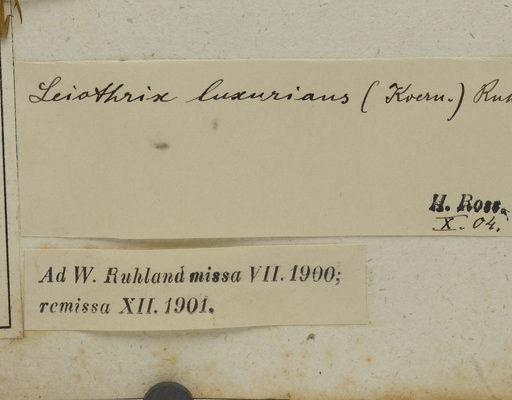 Leiothrix luxurians (Koern.) Ruh
H. Ross.
X. 04.
Ad W. Ruhland missa VII. 1900;
remissa XII. 1901.